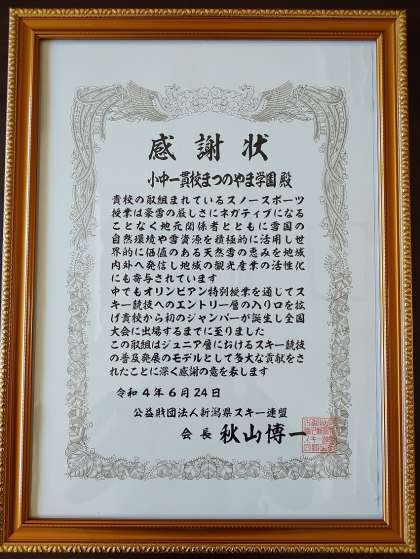 感謝状
小中一貫校まつのやま学園 殿
貴校の取組まれているスノースポーツ
授業は豪雪の厳しさにネガティブになる
ことなく地元関係者とともに雪国の
自然環境や雪資源を積極的に活用し世
界的に価値のある天然雪の恵みを地域
内外へ発信し地域の観光産業の活性化
にも寄与されています
中でもオリンピアン特別授業を通じてス
キー競技へのエントリー層の入り口を拡
げ貴校から初のジャンパーが誕生し全国
大会に出場するまでに至りました
この取組はジュニア層におけるスキー競技
の普及発展のモデルとして多大な貢献をさ
れたことに深く感謝の意を表します
令和4年6月24日
公益財団法人新潟県スキー連盟
会長 秋山博一